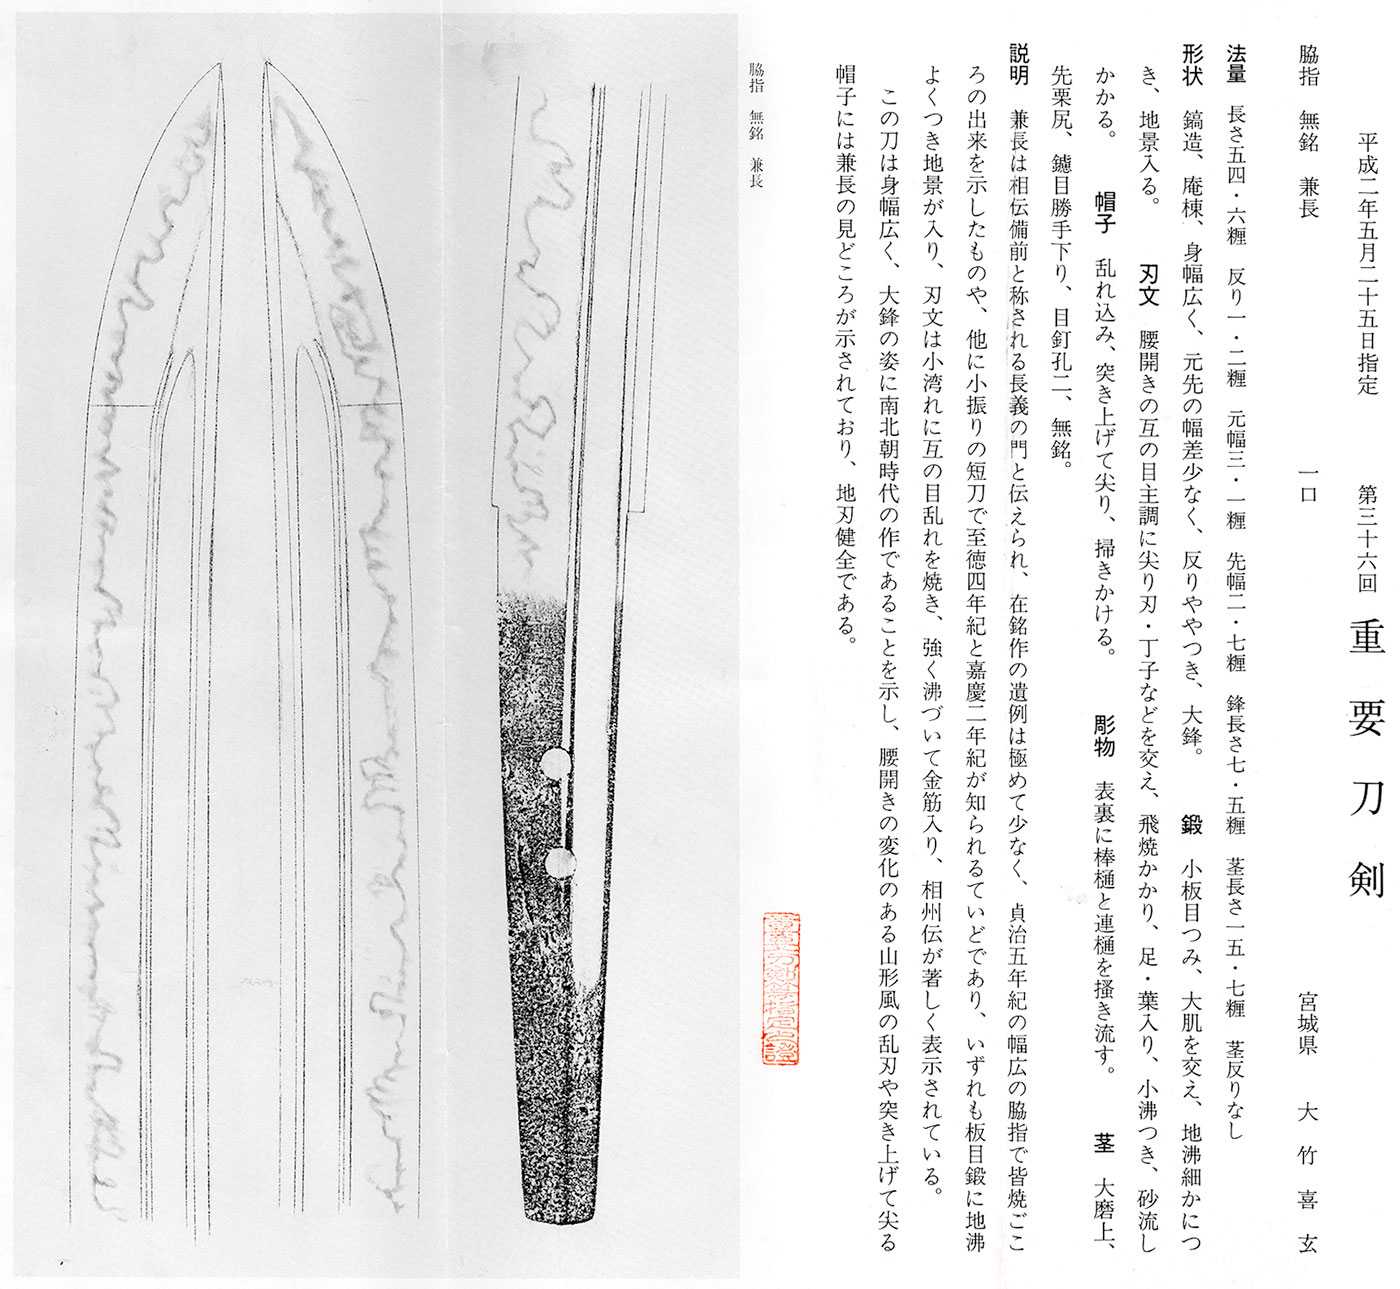 平成二年五月二十五日指定　第三十六回　重要刀剣
脇指　無銘　兼長　一口　宮城県　大竹喜玄
法量　長さ五四・六糎　反り一・二糎　元幅三・一糎　先幅二・七糎　鋒長さ七・五糎　茎長さ一五・七糎　茎反りなし
形状　鎬造、庵棟、身幅広く、元先の幅差少なく、反りややつき、大鋒。　鍛　小板目つみ、大肌を交え、地沸細かにつ
き、地景入る。　刃文　腰開きの互の目主調に尖り刃・丁子などを交え、飛焼かかり、足・葉入り、小沸つき、砂流し
かかる。　帽子　乱れ込み、突き上げて尖り、掃きかける。　彫物　表裏に棒樋と連樋を掻き流す。　茎　大磨上、
先栗尻、鑢目勝手下り、目釘孔二、無銘。
説明　兼長は相伝備前と称される長義の門と伝えられ、在銘作の遺例は極めて少なく、貞治五年紀の幅広の脇指で皆焼ごこ
ろの出来を示したものや、他に小振りの短刀で至徳四年紀と嘉慶二年紀が知られるていどであり、いずれも板目鍛に地沸
よくつき地景が入り、刃文は小湾れに互の目乱れを焼き、強く沸づいて金筋入り、相州伝が著しく表示されている。
この刀は身幅広く、大鋒の姿に南北朝時代の作であることを示し、腰開きの変化のある山形風の乱刃や突き上げて尖る
帽子には兼長の見どころが示されており、地刃健全である。
脇指　無銘　兼長